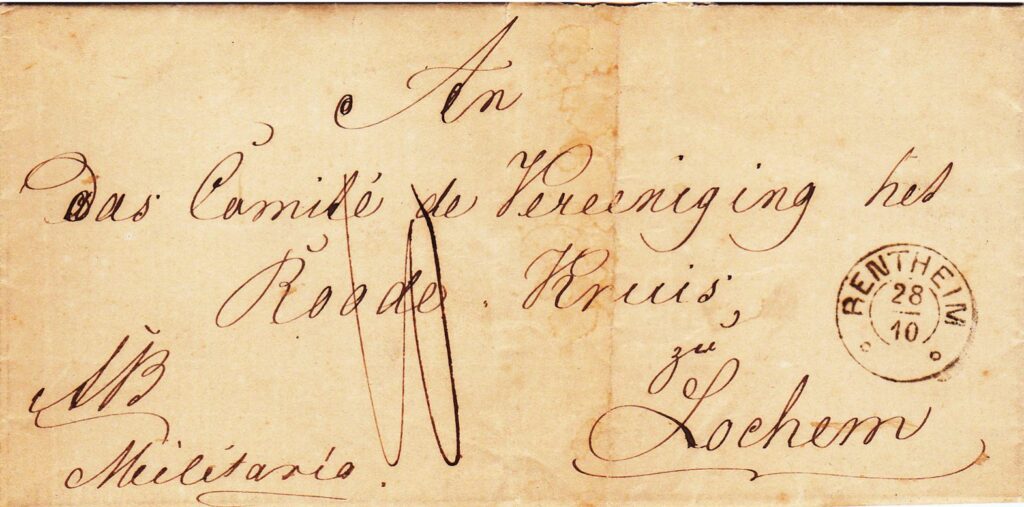 An
Das Comité de Vereeniging het
Roode Kruis,
zu
Lochem
AB
Militaria.
RENTHEIM
28
10